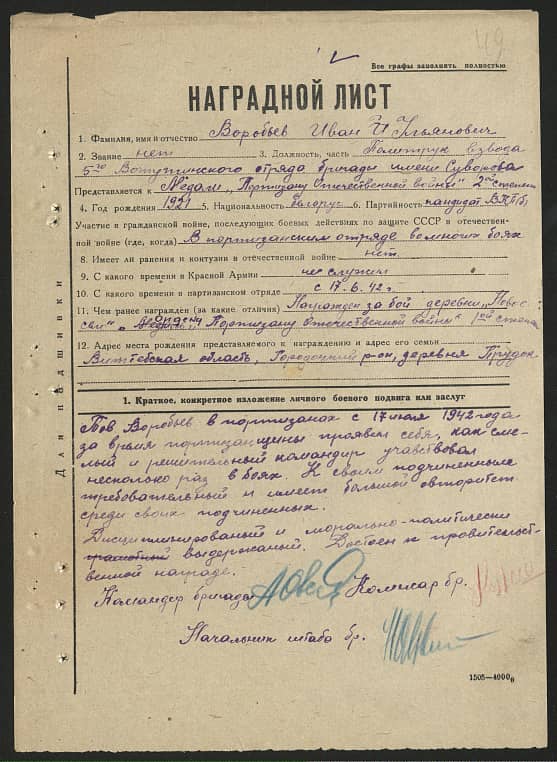 49
Все графы заполнять полностью
НАГРАДНОЙ ЛИСТ
1. Фамилия, имя и отчество Воробьев Иван Ульянович
2. Звание нет 3. Должность, часть Политрук взвода
5го Ватутинского отряда бригады имени Суворова
Представляется к Медали „Партизану Отечественной войны" 2й степени
4. Год рождения 1921 5. Национальность белорус 6. Партийность кандидат ВКП(б)
Участие в гражданской войне, последующих боевых действиях по защите СССР в отечествен-
ной войне (где, когда) В партизанском отряде во многих боях
8. Имеет ли ранения и контузии в отечественной войне нет
9. С какого времени в Красной Армии не служил
10. С какого времени в партизанском отряде с 17.6.42 г.
11. Чем ранее награжден (за какие отличия) Награжден за бой деревни
Партизану Отечественной войны" 1ой степени
12. Адрес места рождения представляемого к награждению и адрес его семьи
Витебская область, Городокский р-он, деревня Прудок
1. Краткое, конкретное изложение личного боевого подвига или заслуг
Тов Воробьев в партизанах с 17 июня 1942 года
за время партизанщины проявил себя, как сме-
лый и решительный командир учавствовал
несколько раз в боях. К своим подчиненным
требовательный и имеет большой авторитет
среди своих подчиненных.
Дисциплинированый и морально-политически
грамотный выдержаный. Достоен к правительст-
венной награде.
Командир бригады Комисар бр.
Начальник штаба бр.
Для подшивки
1505—4000